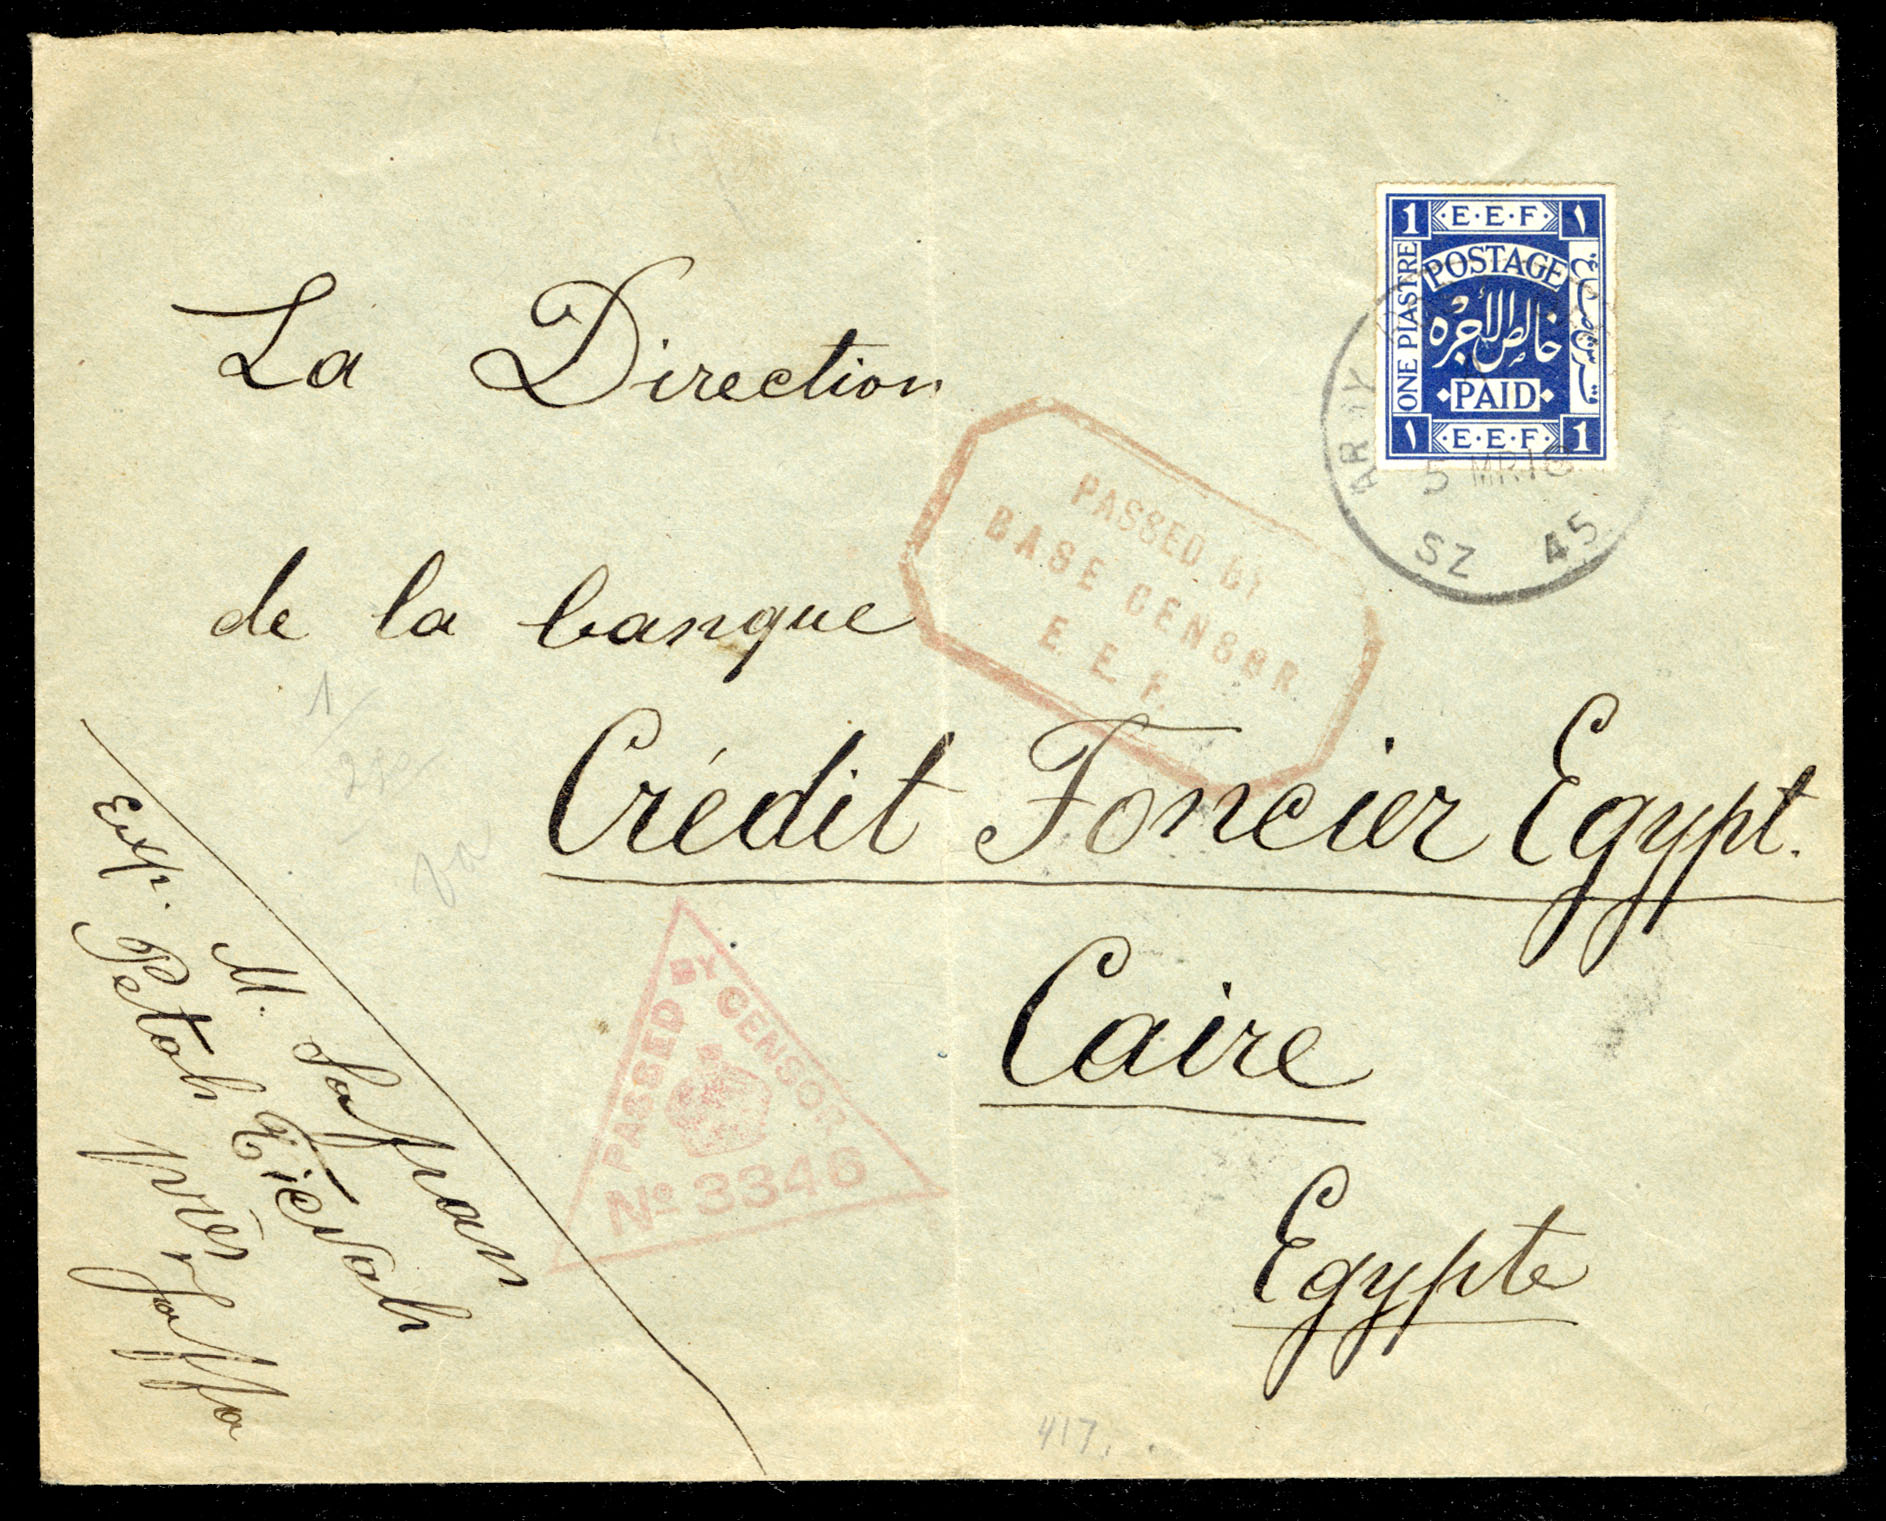 La Direction
de la banque
Crédit Foncier Egypt.
Caire
Egypte
Exp. M. Safran
Petah Tickvah
près Jaffa
1 ·E·E·F· ١
POSTAGE
ONE PIASTRE
خالص الأجره
·PAID·
١ ·E·E·F· 1
ARMY
5 MR 18
SZ 45
PASSED BY
BASE CENSOR
E. E. F.
PASSED BY CENSOR
No 3346
1/
417.